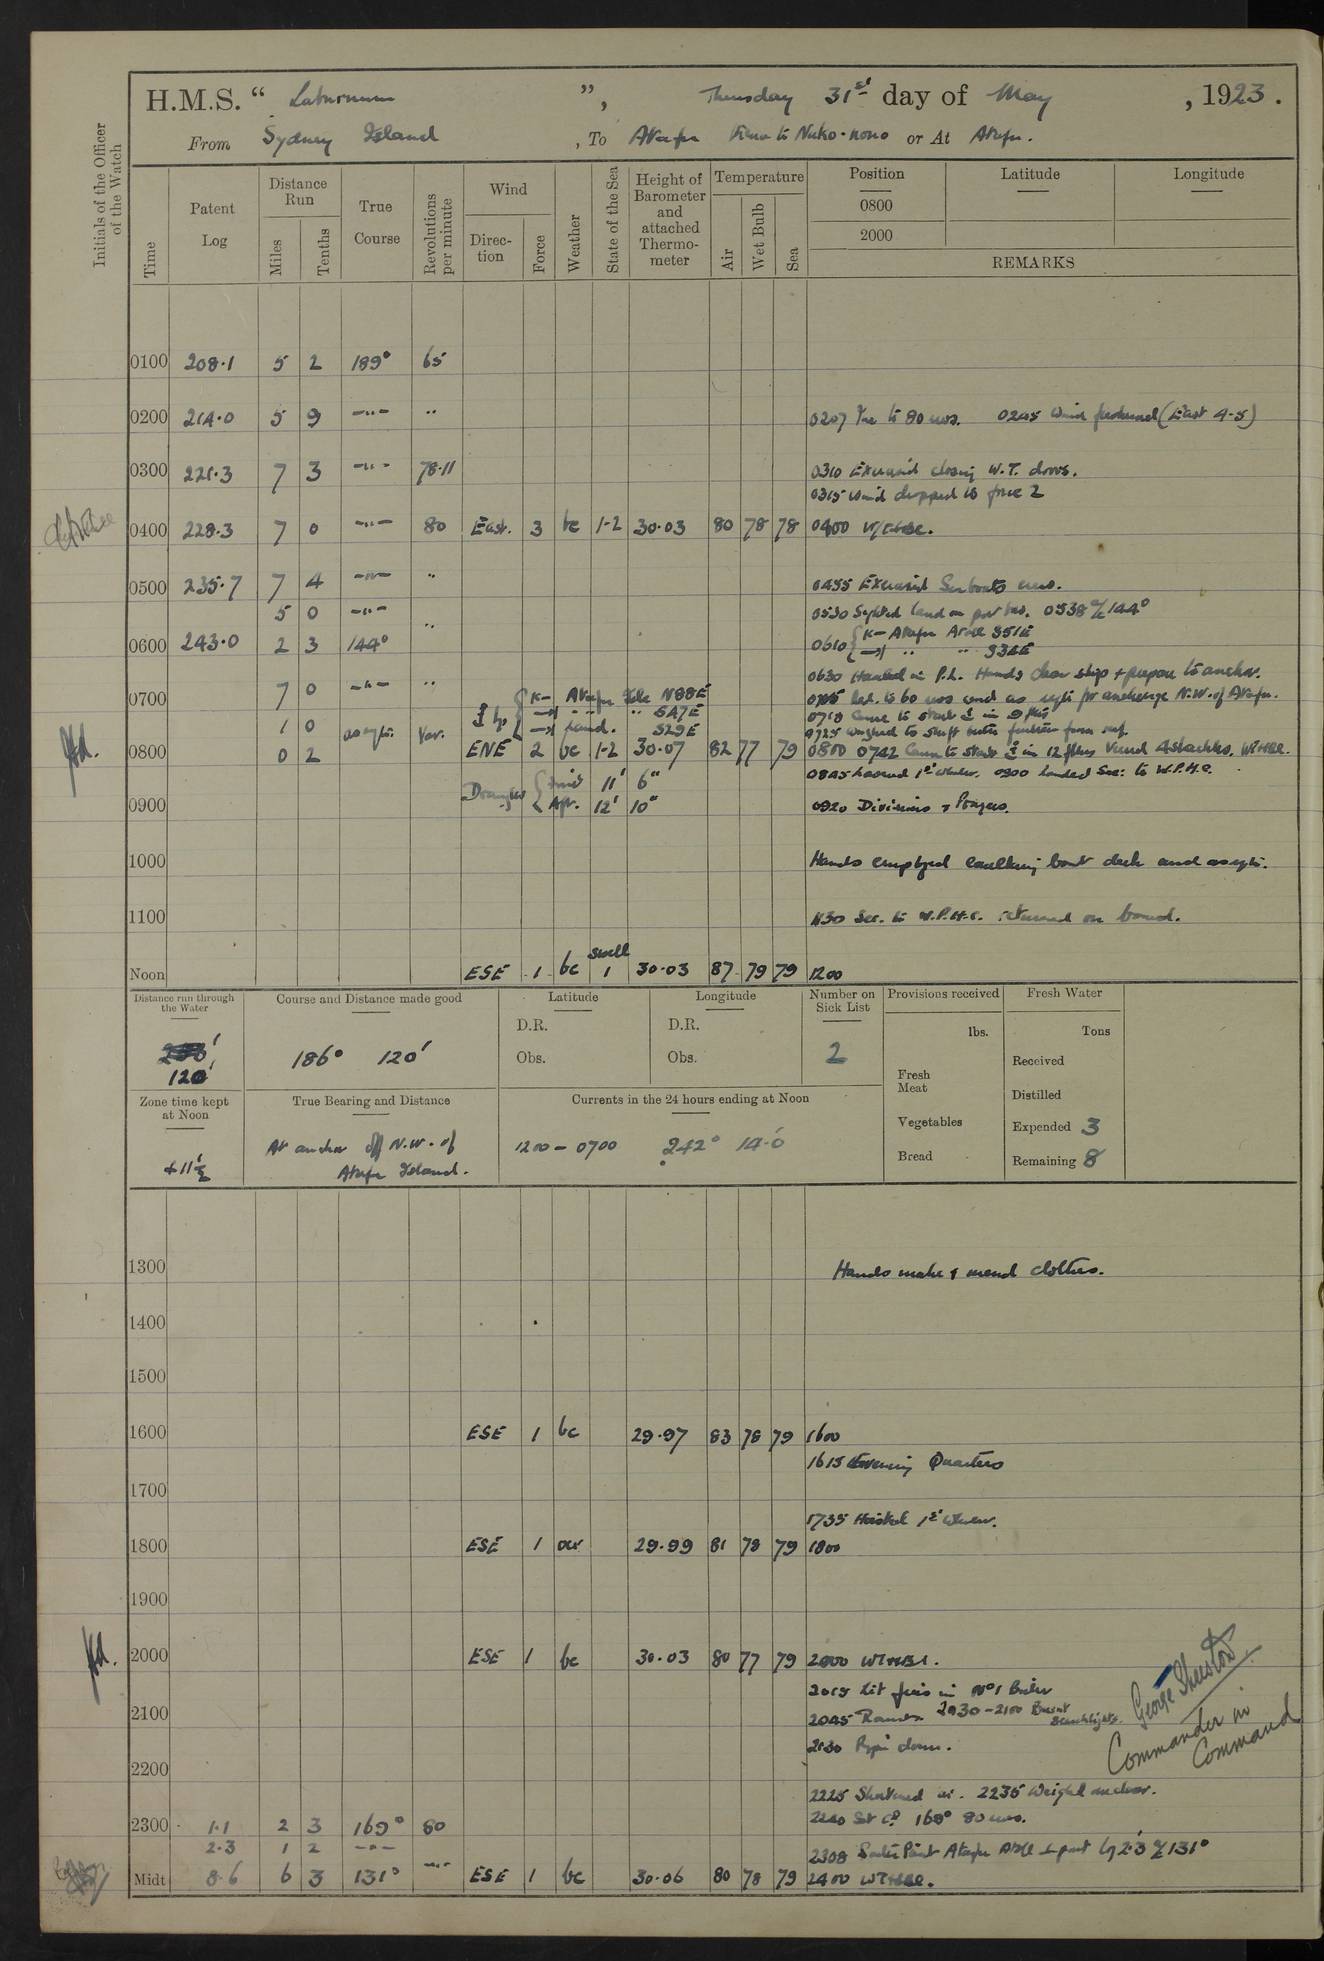 H.M.S. “ Laburnum ”, Thursday 31st day of May , 1923.
From Sydney Island , To Atafu to Nuko-nono or At Atafu.
Initials of the Officer of the Watch
Time
Patent Log
Distance Run
Miles
Tenths
True Course
Revolutions per minute
Wind
Direction
Force
Weather
State of the Sea
Height of Barometer and attached Thermometer
Temperature
Air
Wet Bulb
Sea
Position
Latitude
Longitude
0800
2000
REMARKS
0100 208.1 5 2 189° 65
0200 214.0 5 9 –"– " 0207 Inc to 80 revs. 0245 Wind freshened (East 4-5)
0300 221.3 7 3 –"– 78.11 0310 Exercised closing W.T. doors.
0315 Wind dropped to force 2
0400 228.3 7 0 –"– 80 East. 3 bc 1-2 30.03 80 78 78 0400
0500 235.7 7 4 –"– " 0455 Exercised Seaboats crews.
5 0 –"– 0530 Sighted land on port bow. 0538 a/c 144°
0600 243.0 2 3 144° " 0610 { K– Atafu Atoll S51E
→| " " S34E
0630 Hauled in P.L. Hands clear ship & prepare to anchor.
0700 7 0 –"– " { K– Atafu Isle N88E
→| " " S47E
→| Land. S29E
0705 Red. to 60 revs and as reqte for anchorage N.W. of Atafu.
1 0 as reqte. Var.
0725 weighed to shift berth further from reef.
0800 0 2 ENE 2 bc 1-2 30.07 82 77 79 0800 0742 Came to
0845 Lowered 1st Whaler. 0900 Landed Sec: to W.P.H.C.
Draught { 11' 6"
Aft. 12' 10"
0900 0920 Divisions & Prayers.
1000 Hands employed caulking boat deck and as reqte.
1100 1130 Sec. to W.P.H.C. returned on board.
Noon ESE 1 bc swell 1 30.03 87 79 79 1200
Distance run through the Water
120'
Course and Distance made good
186° 120'
Latitude
D.R.
Obs.
Longitude
D.R.
Obs.
Number on Sick List
2
Provisions received
lbs.
Fresh Meat
Vegetables
Bread
Fresh Water
Tons
Received
Distilled
Expended 3
Remaining 8
Zone time kept at Noon
+11½
True Bearing and Distance
At anchor off N.W. of
Atafu Island.
Currents in the 24 hours ending at Noon
1200 – 0700 242° 14.0
1300 Hands make & mend clothes.
1400
1500
1600 ESE 1 bc 29.97 83 78 79 1600
1615 Evening Quarters
1700
1735 Hoisted 1st Whaler.
1800 ESE 1 29.99 81 78 79 1800
1900
2000 ESE 1 bc 30.03 80 77 79 2000
2015 Lit fires in No 1 Boiler
2100 2045 Rounds. 2030-2100 Burnt Searchlights.
2130 Pipe down.
2200
2225 Shortened in. 2235 Weighed anchor.
2300 1.1 2 3 169° 80 2240 St Co 169° 80 revs.
2.3 1 2 –"– 2308 Point Atafu Atoll port 2.3 a/c 131°
Midt 8.6 6 3 131° –"– ESE 1 bc 30.06 80 78 79 2400
George Sheeston
Commander in Command